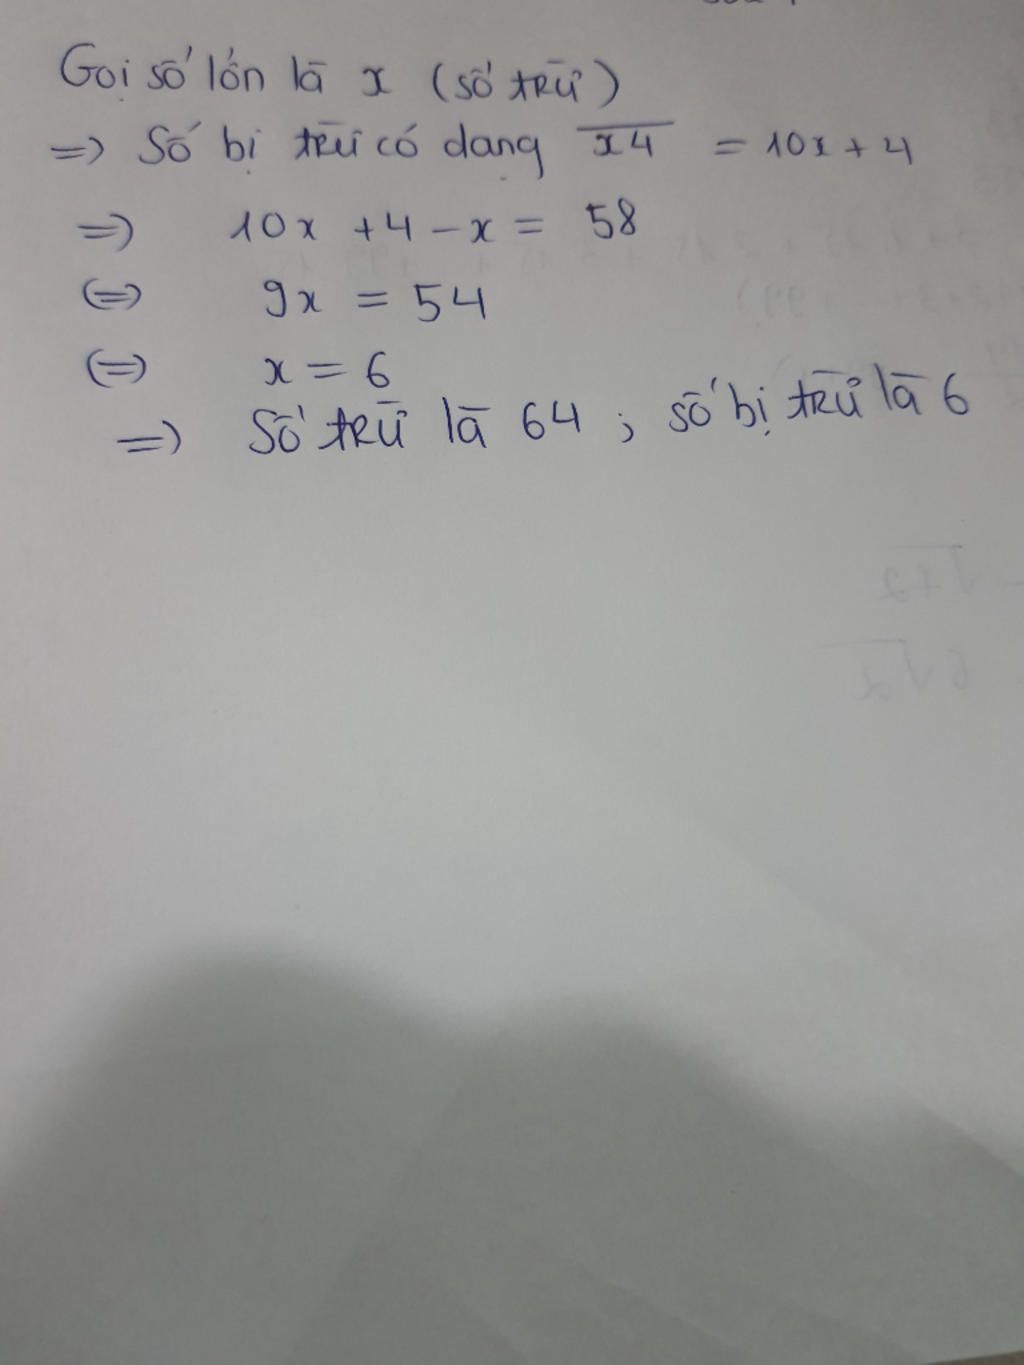 Gọi số lớn là x (số trừ)
=> Số bị trừ có dạng x4 = 10x + 4
=> 10x + 4 - x = 58
<=> 9x = 54
<=> x = 6
=> Số trừ là 64 ; số bị trừ là 6